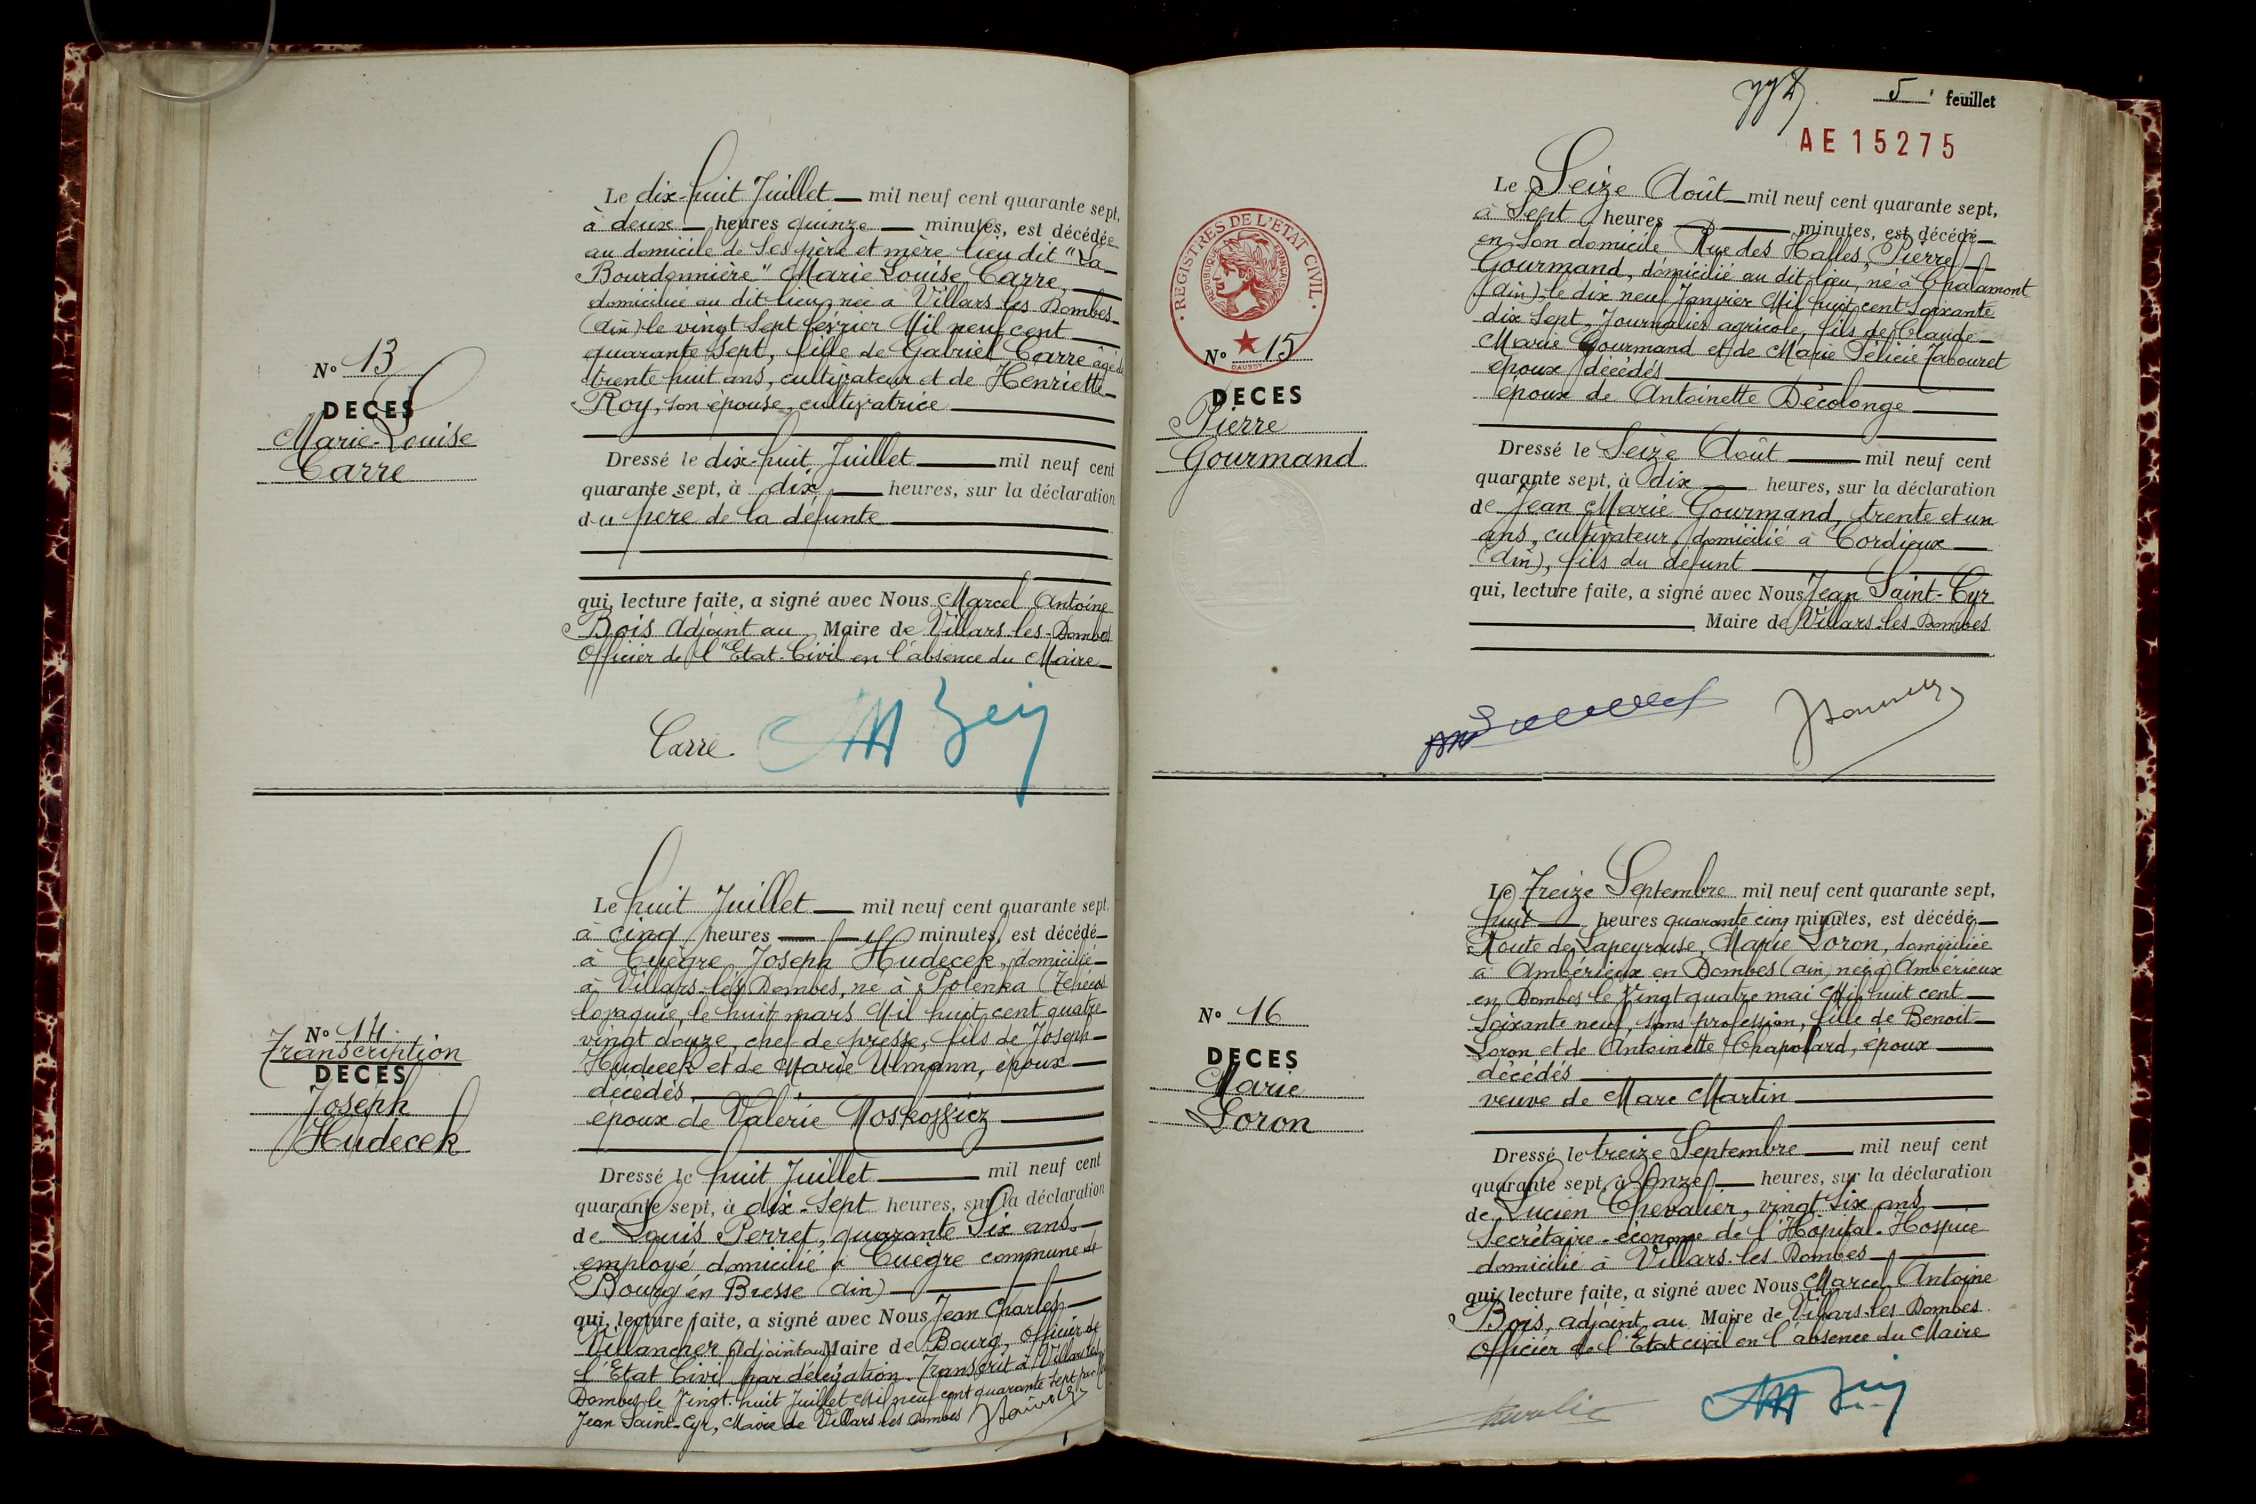 N° 13
DECES
Marie-Louise
Carre
Le dix-huit Juillet mil neuf cent quarante sept,
à deux heures quinze minutes, est décédée
au domicile de ses père et mère lieu dit "La
Bourdonnière" Marie Louise Carre,
domiciliée au dit lieu, née à Villars les Dombes
(Ain) le vingt sept février Mil neuf cent
quarante sept, fille de Gabriel Carre âgé de
trente huit ans, cultivateur et de Henriette
Roy, son épouse, cultivatrice
Dressé le dix-huit Juillet mil neuf cent
quarante sept, à dix heures, sur la déclaration
du père de la défunte
qui, lecture faite, a signé avec Nous Marcel Antoine
Bois Adjoint au Maire de Villars-les-Dombes
Officier de l'Etat-Civil en l'absence du Maire
Carre
N° 14
Transcription
DECES
Joseph
Hudecek
Le huit Juillet mil neuf cent quarante sept,
à cinq heures minutes, est décédé
à Cuègre, Joseph Hudecek, domicilié
à Villars-les-Dombes, né à Polenka (Tchécos
lovaquie, le huit mars Mil huit cent quatre
vingt douze, chef de presse, fils de Joseph
Hudecek et de Marie Ulmann, époux
décédés
époux de Valérie
Dressé le huit Juillet mil neuf cent
quarante sept, à dix-sept heures, sur la déclaration
de Louis Perret, quarante six ans
employé domicilié à Cuègre commune de
Bourg en Bresse (Ain)
qui, lecture faite, a signé avec Nous Jean Charles
Villancher Adjoint au Maire de Bourg, Officier de
l'Etat Civil par délégation. Transcrit à Villars les
Dombes le Vingt-huit Juillet Mil neuf cent quarante sept par
Jean Saint-Cyr, Maire de Villars les Dombes
5 feuillet
AE 15275
REGISTRES DE L'ETAT CIVIL
REPUBLIQUE FRANÇAISE
DAUSSY
N° 15
DECES
Pierre
Gourmand
Le Seize Août mil neuf cent quarante sept,
à Sept heures minutes, est décédé
en son domicile Rue des Halles, Pierre
Gourmand, domicilié au dit lieu, né à Chalamont
(Ain) le dix neuf Janvier Mil huit cent soixante
dix sept, Journalier agricole, fils de Claude
Marie Gourmand et de Marie Félicie Tabouret
époux décédés
époux de Antoinette Décolonge
Dressé le Seize Août mil neuf cent
quarante sept, à dix heures, sur la déclaration
de Jean Marie Gourmand, trente et un
ans, cultivateur, domicilié à Cordieux
(Ain), fils du défunt
qui, lecture faite, a signé avec Nous Jean Saint-Cyr
Maire de Villars-les-Dombes
N° 16
DECES
Marie
Loron
Le Treize Septembre mil neuf cent quarante sept,
huit heures quarante cinq minutes, est décédée
Route de Lapeyrouse, Marie Loron, domiciliée
à Ambérieux en Dombes (Ain, née à Ambérieux
en Dombes le Vingt quatre mai Mil huit cent
soixante neuf, sans profession, fille de Benoit
Loron et de Antoinette Chapolard, époux
décédés
veuve de Marc Martin
Dressé le treize Septembre mil neuf cent
quarante sept, à Onze heures, sur la déclaration
de Lucien Chevalier, vingt six ans
Secrétaire-économe de l'Hôpital-Hospice
domicilié à Villars-les-Dombes
qui, lecture faite, a signé avec Nous Marcel Antoine
Bois, adjoint au Maire de Villars-les-Dombes
Officier de l'Etat civil en l'absence du Maire